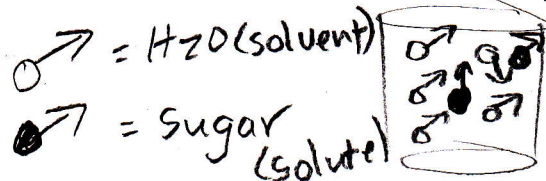 = H2O (solvent)
= Sugar
(solute)